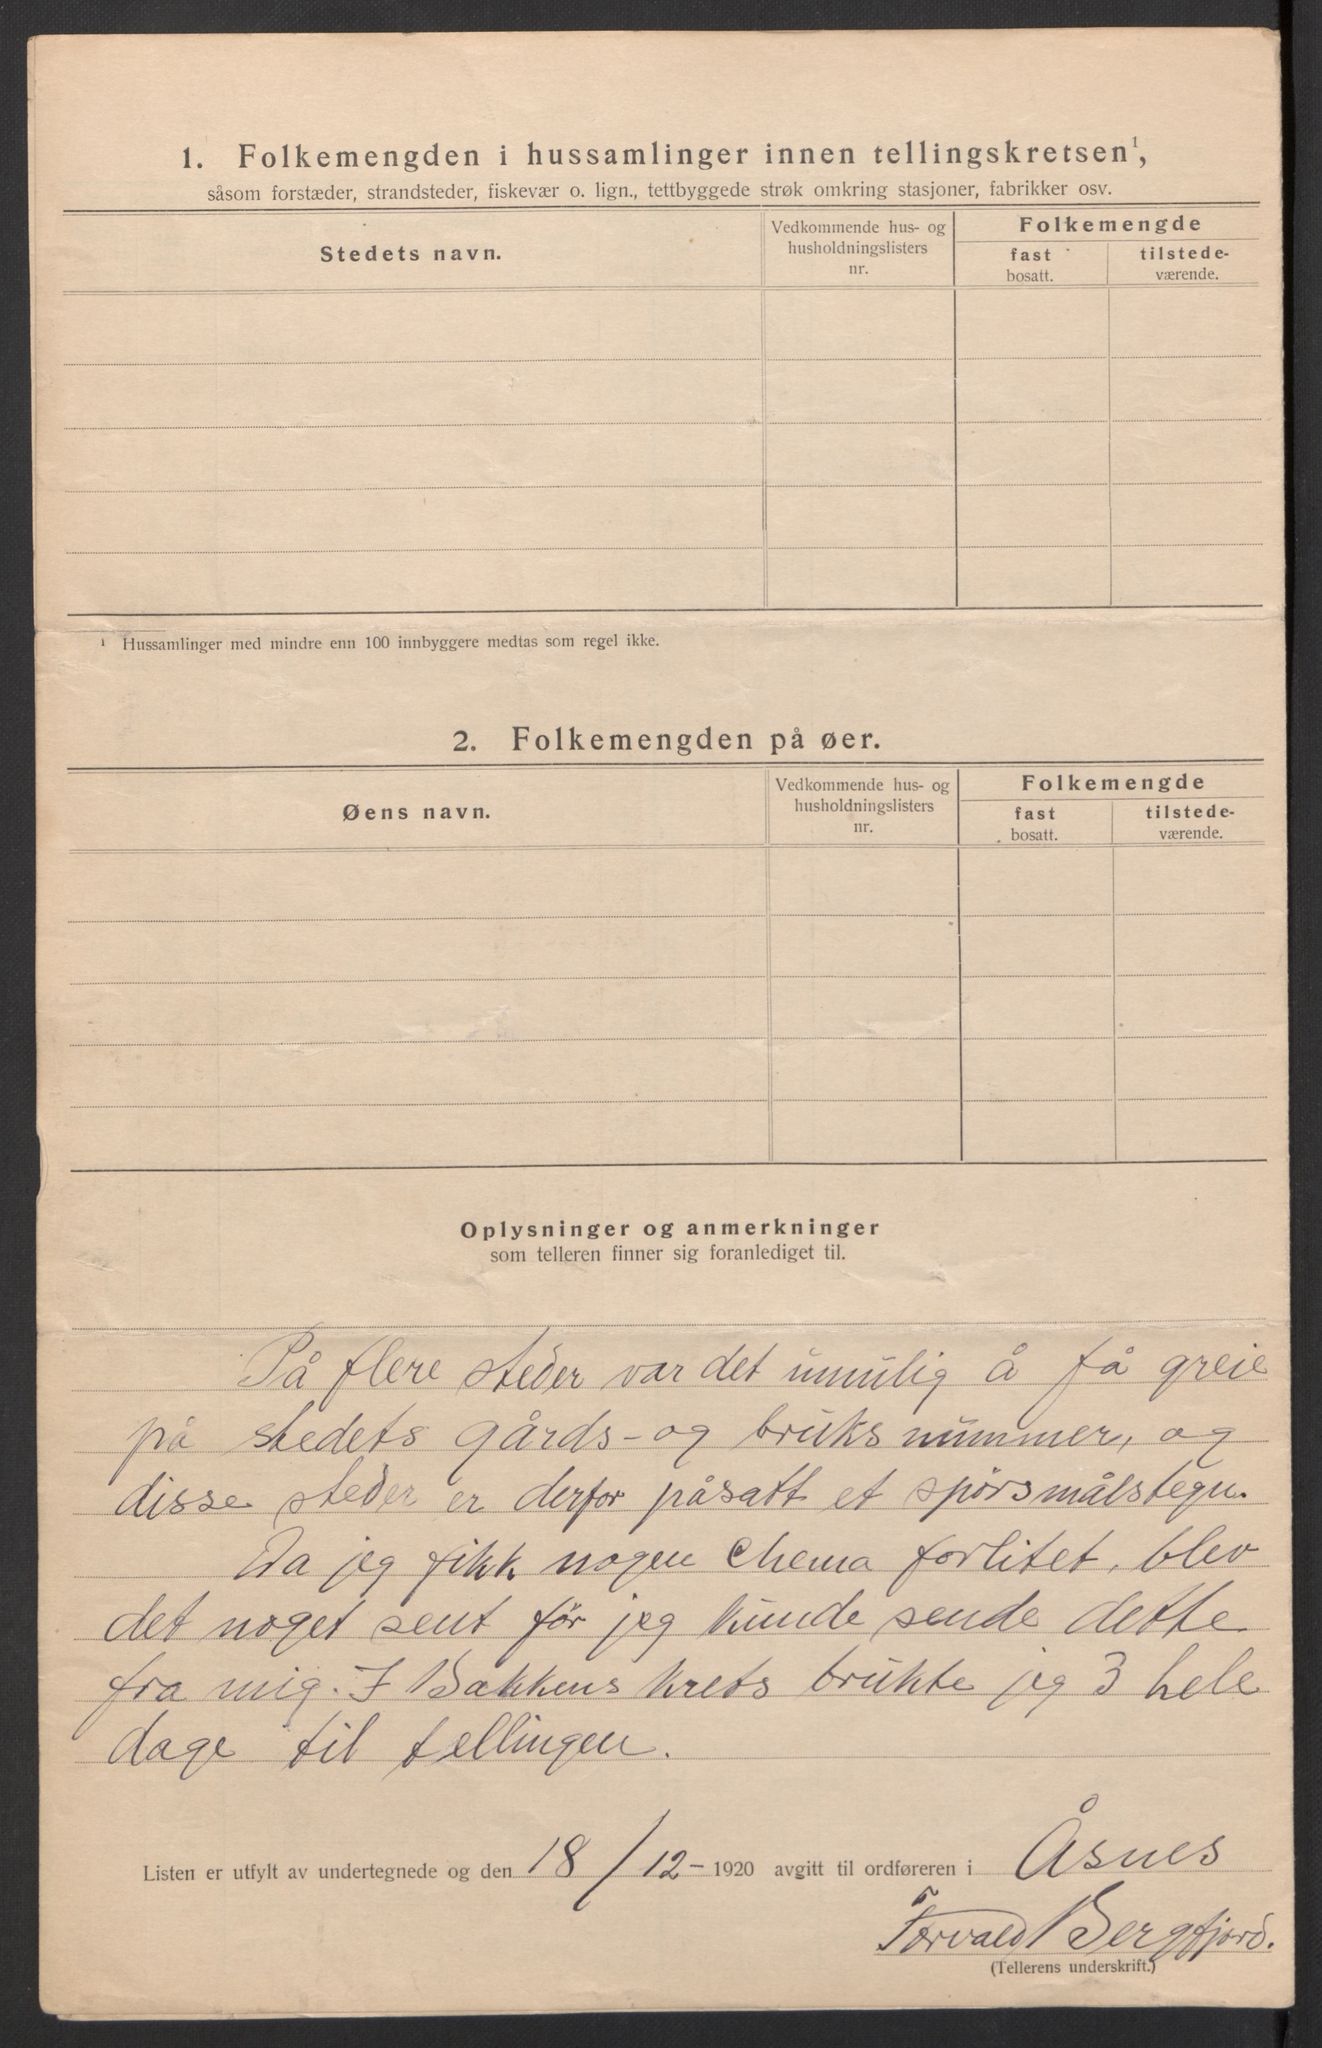 1. Folkemengden i hussamlinger innen tellingskretsen¹,
såsom forstæder, strandsteder, fiskevær o. lign., tettbyggede strøk omkring stasjoner, fabrikker osv.
Stedets navn.
Vedkommende hus- og
husholdningslisters
nr.
Folkemengde
fast
bosatt.
tilstede-
værende.
¹ Hussamlinger med mindre enn 100 innbyggere medtas som regel ikke.
2. Folkemengden på øer.
Øens navn.
Vedkommende hus- og
husholdningslisters
nr.
Folkemengde
fast
bosatt.
tilstede-
værende.
Oplysninger og anmerkninger
som telleren finner sig foranlediget til.
På flere steder var det umulig å få greie
på stedets gårds- og bruksnummer, og
disse steder er derfor påsatt et spørsmålstegn.
Da jeg fikk nogen chema forlitet, blev
det noget sent før jeg kunde sende dette
fra mig. I Bakkens krets brukte jeg 3 hele
dage til tellingen.
Listen er utfylt av undertegnede og den 18/12- 1920 avgitt til ordføreren i Åsnes
Torvald Bergfjord.
(Tellerens underskrift.)